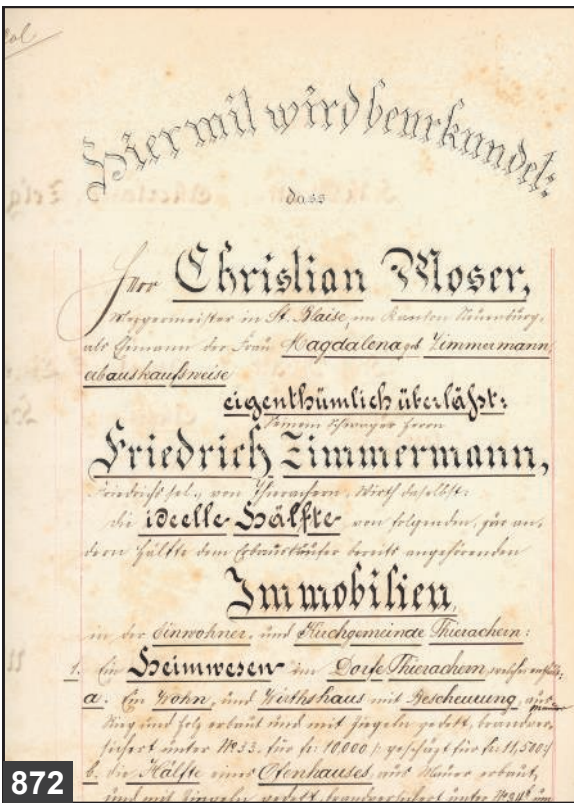 Hiermit wird beurkundet:
dass
Herr Christian Moser,
Metzgermeister in St. Blaise, im Kanton Neuenburg,
als Ehmann der Frau Magdalena geb Zimmermann,
erbauskaufsweise
eigenthümlich überläßt:
seinem Schwager Herrn
Friedrich Zimmermann,
Friedrichs sel., von Thierachern, Wirth daselbst:
die ideelle Hälfte von folgenden, zur an-
dern Hälfte dem Erbauskäufer bereits angehörenden
Immobilien,
in der Einwohner- und Kirchgemeinde Thierachern:
1. Ein Heimwesen im Dorfe Thierachern, welches enthält:
a. Ein Wohn- und Wirthshaus mit Bescheuung, aus
Rieg und Holz erbaut und mit Ziegeln gedekt, brandver-
sichert unter № 33. für fr: 10,000 /: geschäzt für fr: 11,500 :/
b. die Hälfte eines Ofenhauses, aus Mauer erbaut,
und mit Ziegeln gedekt, brandversichert unter
872